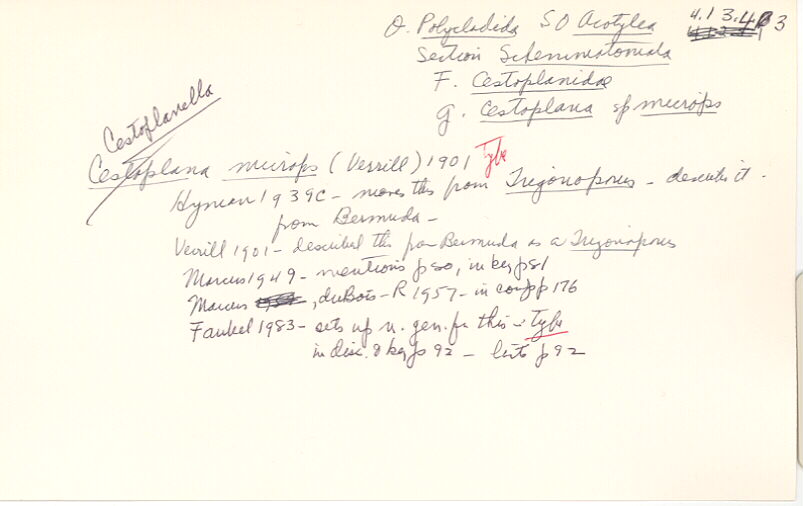 O. Polycladida SO Acotylea 4.13.4 3
Section Schemmatomata
F. Cestoplanidae
g. Cestoplana sp microps
Cestoplanella
Cestoplana microps (Verrill) 1901 Type
Hyman 1939c - moves this from Trigonoporus - describes it
from Bermuda -
Verrill 1901 - described this from Bermuda as a Trigonoporus
Marcus 1949 - mentions p 80, in key p 81
Marcus, duBois-R 1957 - in p 176
Faubel 1983 - sets up n. gen. for this - type
in disc. & key p 92 - lists p 92